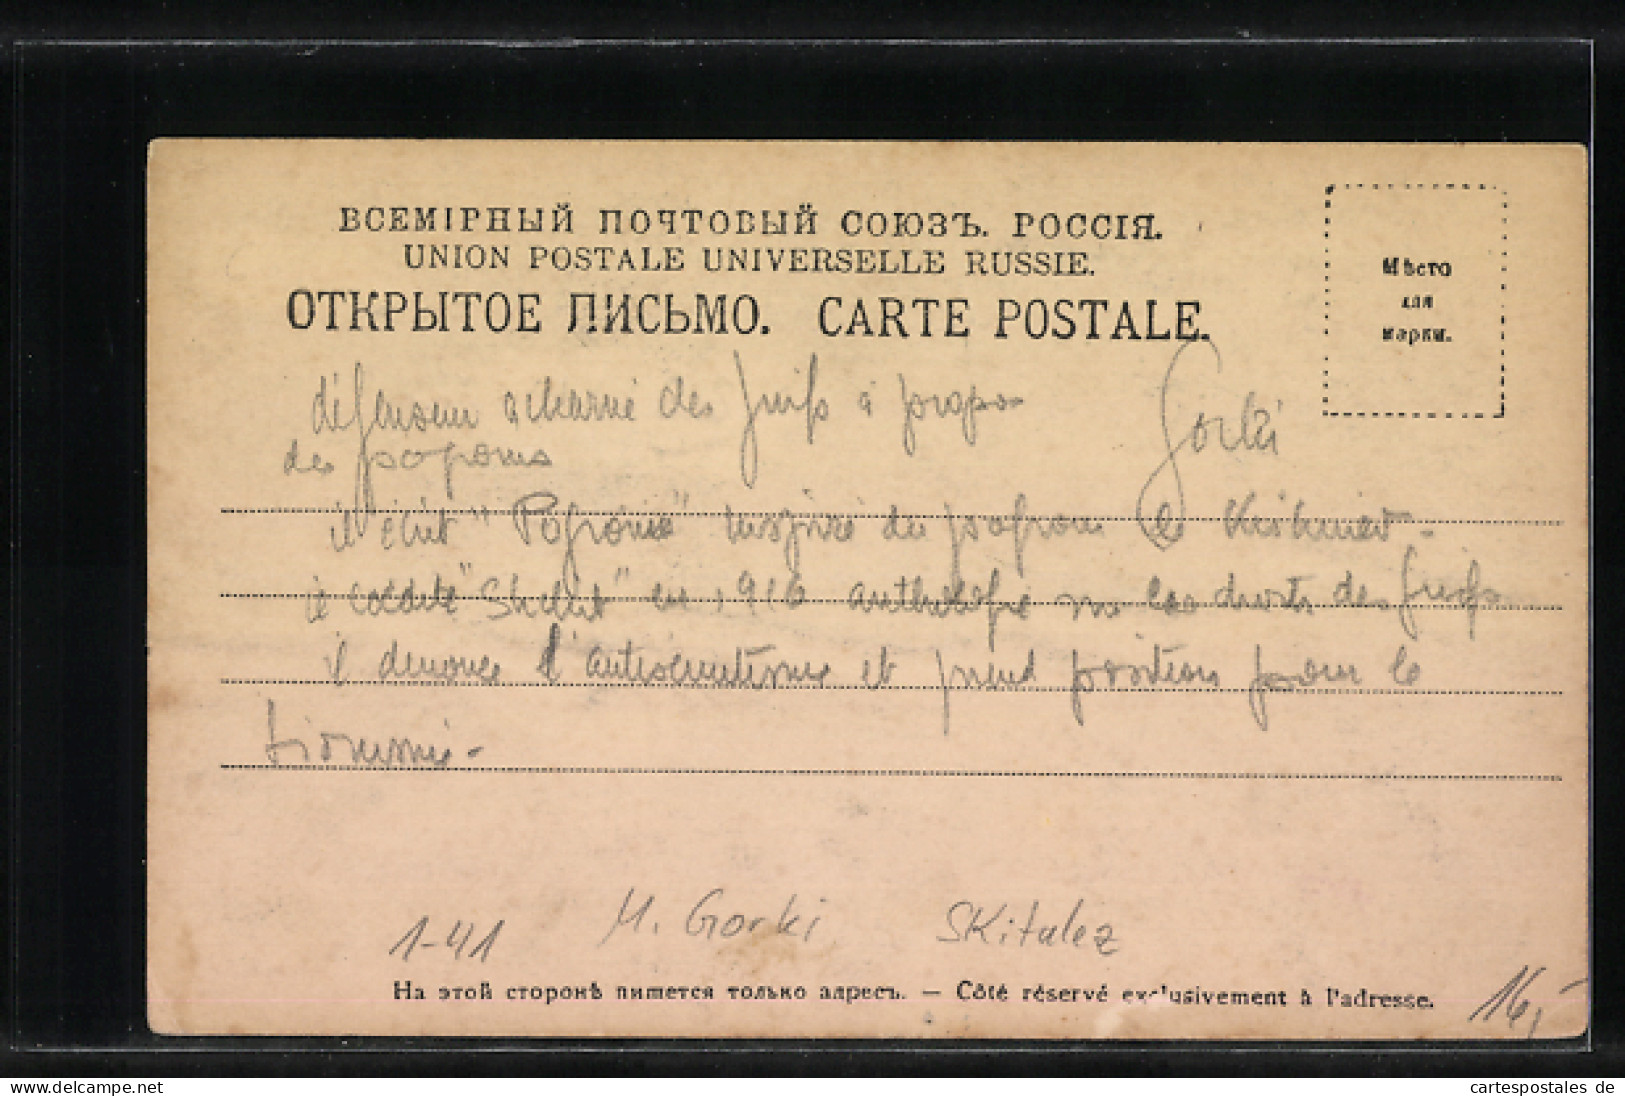 ВСЕМІРНЫЙ ПОЧТОВЫЙ СОЮЗЪ. РОССІЯ.
UNION POSTALE UNIVERSELLE RUSSIE.
ОТКРЫТОЕ ПИСЬМО. CARTE POSTALE.
Мѣсто
для
марки.
défenseur acharné des Juifs à propos
Gorki
des pogroms
il écrit "Pogrome" inspiré du pogrom de Kichinev -
"Shchit" en 1916 anthologie sur les droits des Juifs
il dénonce l'antisémitisme et prend position pour le
sionisme -
1-41 M. Gorki SKitalez
На этой сторонѣ пишется только адресъ. — Côté réservé exclusivement à l'adresse.
16,-
cartespostales de